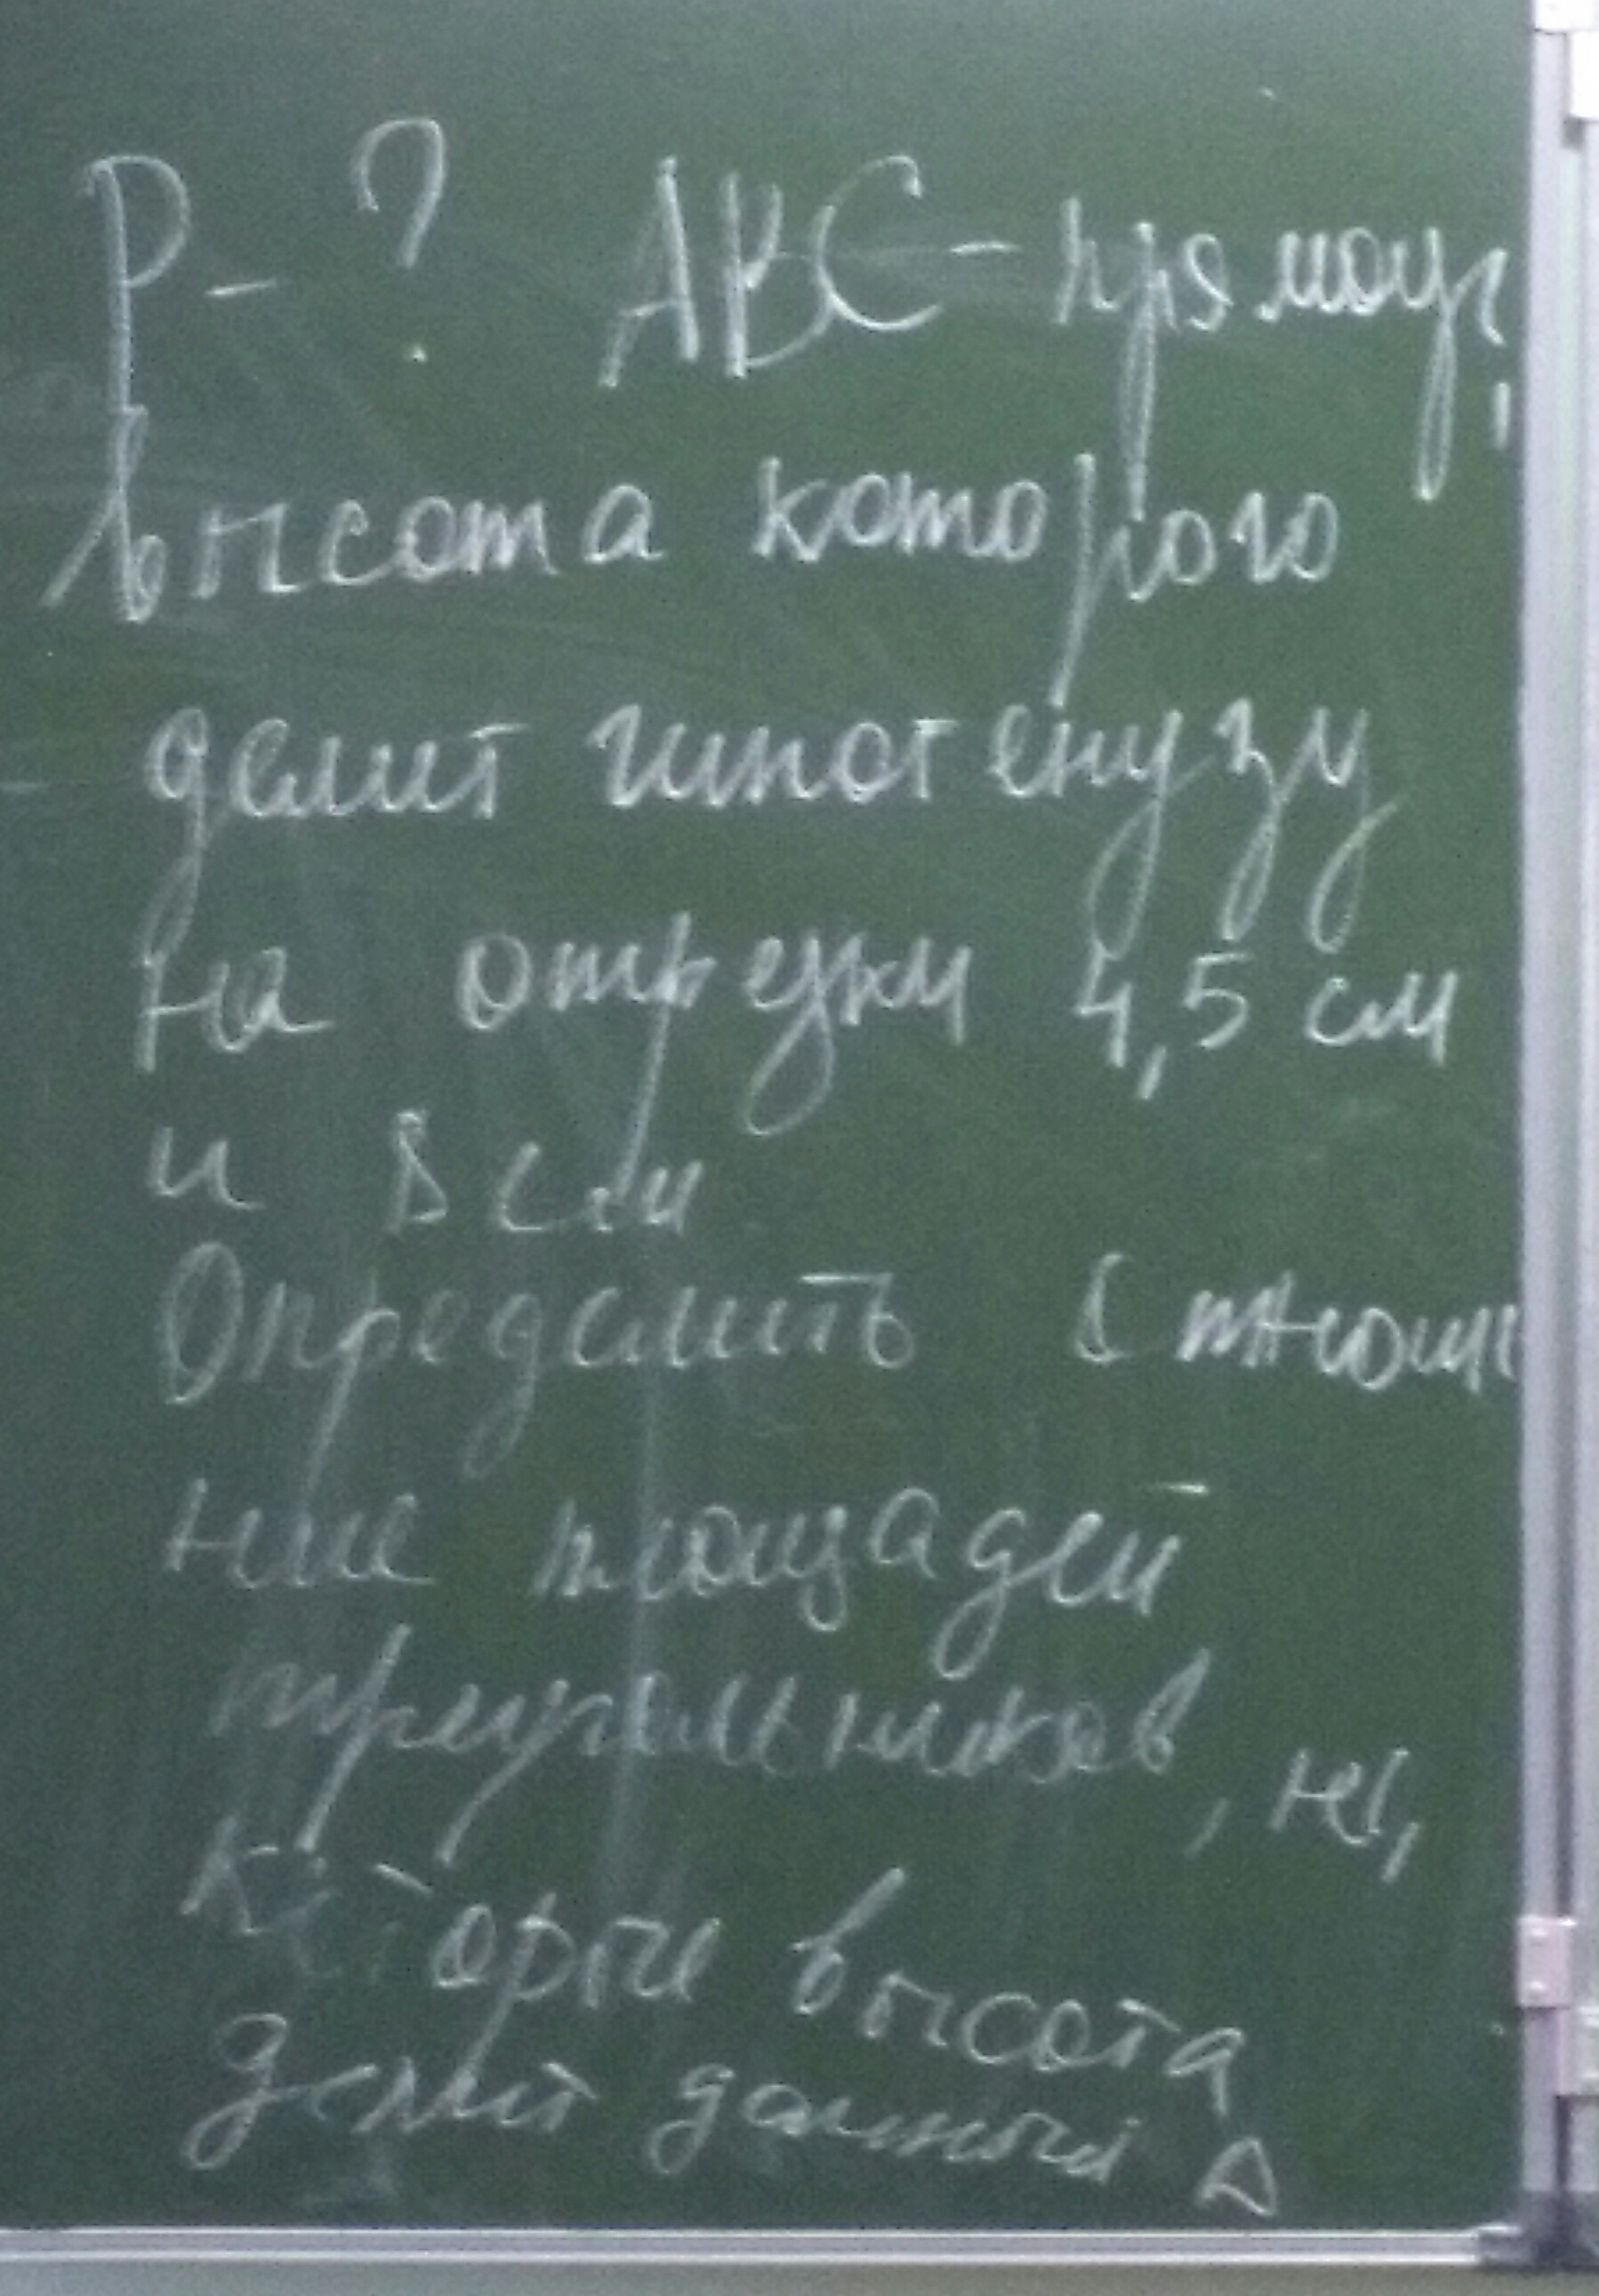 Р - ? АВС - прямоуг.
высота которого
делит гипотенузу
на отрезки 4,5 см
и 8 см
Определить
ние площадей
треугольников, на,
которые высота
делит данный Δ